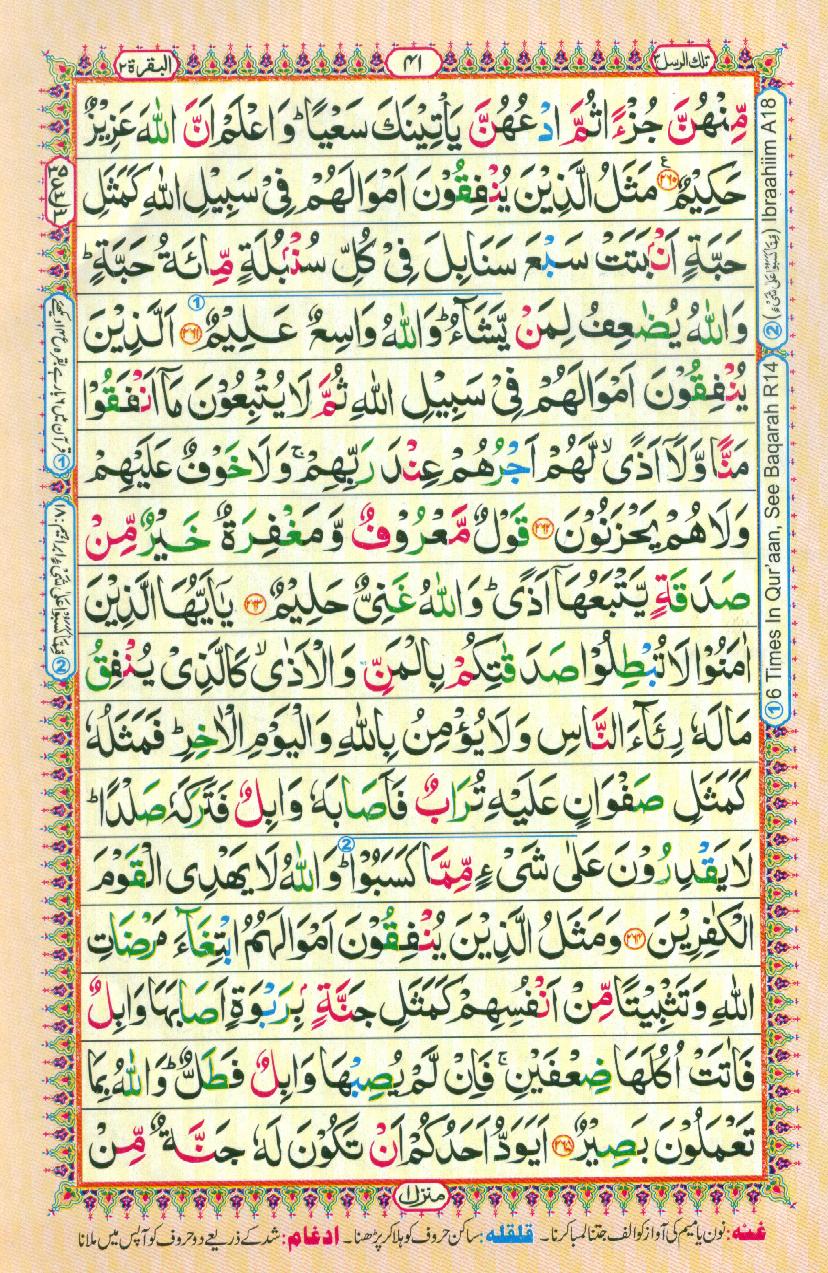 تلك الرسل ٣
٤١
البقرة ٢
مِّنْهُنَّ جُزْءًا ثُمَّ ادْعُهُنَّ يَأْتِيْنَكَ سَعْيًا ؕ وَاعْلَمْ اَنَّ اللّٰهَ عَزِيْزٌ
حَكِيْمٌ ۟﴿۲۶۰﴾ مَثَلُ الَّذِيْنَ يُنْفِقُوْنَ اَمْوَالَهُمْ فِيْ سَبِيْلِ اللّٰهِ كَمَثَلِ
حَبَّةٍ اَنْۢبَتَتْ سَبْعَ سَنَابِلَ فِيْ كُلِّ سُنْۢبُلَةٍ مِّائَةُ حَبَّةٍ ؕ
وَاللّٰهُ يُضٰعِفُ لِمَنْ يَّشَآءُ ؕ وَاللّٰهُ وَاسِعٌ عَلِيْمٌ ﴿۲۶۱﴾ اَلَّذِيْنَ
يُنْفِقُوْنَ اَمْوَالَهُمْ فِيْ سَبِيْلِ اللّٰهِ ثُمَّ لَا يُتْبِعُوْنَ مَاۤ اَنْفَقُوْا
مَنًّا وَّلَاۤ اَذًى ۙ لَّهُمْ اَجْرُهُمْ عِنْدَ رَبِّهِمْ ۚ وَلَا خَوْفٌ عَلَيْهِمْ
وَلَا هُمْ يَحْزَنُوْنَ ﴿۲۶۲﴾ قَوْلٌ مَّعْرُوْفٌ وَّمَغْفِرَةٌ خَيْرٌ مِّنْ
صَدَقَةٍ يَّتْبَعُهَاۤ اَذًى ؕ وَاللّٰهُ غَنِيٌّ حَلِيْمٌ ﴿۲۶۳﴾ يٰۤاَيُّهَا الَّذِيْنَ
اٰمَنُوْا لَا تُبْطِلُوْا صَدَقٰتِكُمْ بِالْمَنِّ وَالْاَذٰى ۙ كَالَّذِيْ يُنْفِقُ
مَالَهٗ رِئَآءَ النَّاسِ وَلَا يُؤْمِنُ بِاللّٰهِ وَالْيَوْمِ الْاٰخِرِ ؕ فَمَثَلُهٗ
كَمَثَلِ صَفْوَانٍ عَلَيْهِ تُرَابٌ فَاَصَابَهٗ وَابِلٌ فَتَرَكَهٗ صَلْدًا ؕ
لَا يَقْدِرُوْنَ عَلٰى شَيْءٍ مِّمَّا كَسَبُوْا ؕ وَاللّٰهُ لَا يَهْدِي الْقَوْمَ
الْكٰفِرِيْنَ ﴿۲۶۴﴾ وَمَثَلُ الَّذِيْنَ يُنْفِقُوْنَ اَمْوَالَهُمُ ابْتِغَآءَ مَرْضَاتِ
اللّٰهِ وَتَثْبِيْتًا مِّنْ اَنْفُسِهِمْ كَمَثَلِ جَنَّةٍۭ بِرَبْوَةٍ اَصَابَهَا وَابِلٌ
فَاٰتَتْ اُكُلَهَا ضِعْفَيْنِ ۚ فَاِنْ لَّمْ يُصِبْهَا وَابِلٌ فَطَلٌّ ؕ وَاللّٰهُ بِمَا
تَعْمَلُوْنَ بَصِيْرٌ ﴿۲۶۵﴾ اَيَوَدُّ اَحَدُكُمْ اَنْ تَكُوْنَ لَهٗ جَنَّةٌ مِّنْ
② Ibraahiim A18
① 6 Times In Qur'aan, See Baqarah R14
منزل ١
غنه: نون یا میم کی آواز کو الف جتنا لمبا کرنا۔ قلقله: ساکن حروف کو ہلا کر پڑھنا۔ ادغام: شد کے ذریعے دو حروف کو آپس میں ملانا